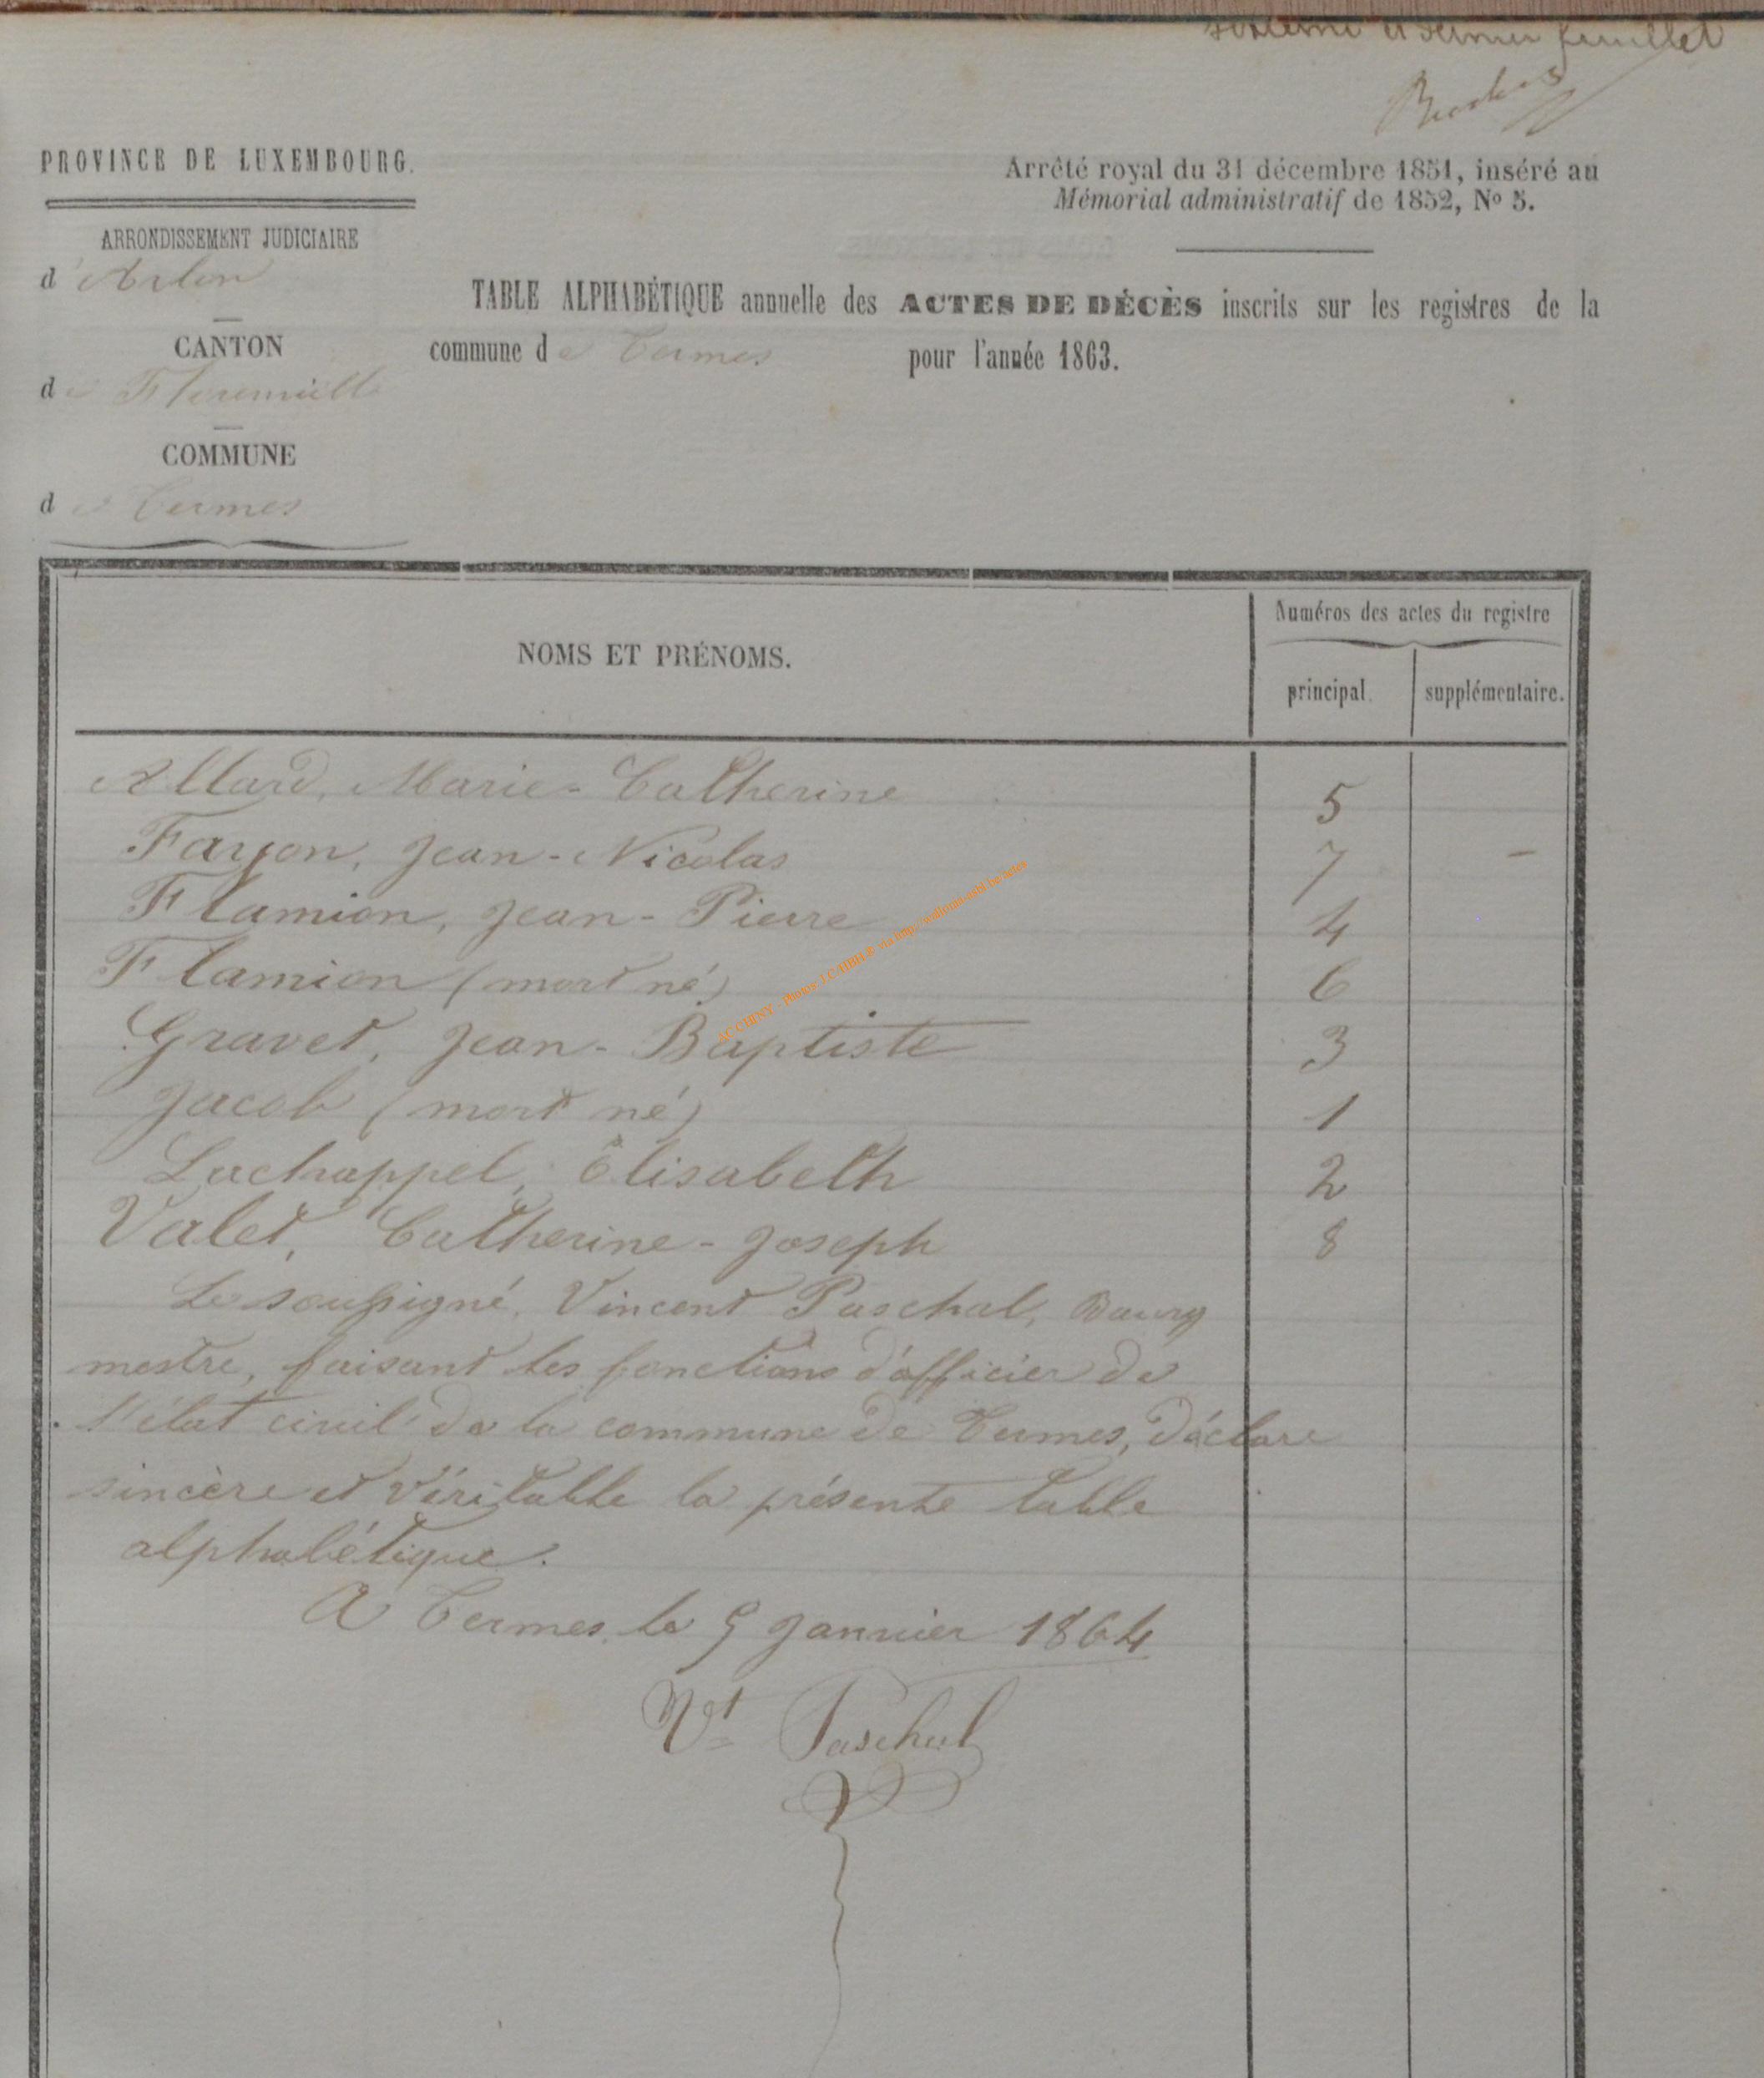 et dernier feuillet
PROVINCE DE LUXEMBOURG.
Arrêté royal du 31 décembre 1851, inséré au
Mémorial administratif de 1852, No 5.
ARRONDISSEMENT JUDICIAIRE
d'Arlon
CANTON
de Florenville
COMMUNE
de Termes
TABLE ALPHABÉTIQUE annuelle des ACTES DE DÉCÈS inscrits sur les registres de la
commune de Termes pour l'année 1863.
NOMS ET PRÉNOMS.
Numéros des actes du registre
principal. supplémentaire.
Allard, Marie-Catherine 5
Fayon, Jean-Nicolas 7 -
Flamion, Jean-Pierre 4
Flamion (mort né) 6
Gravet, Jean-Baptiste 3
Jacob (mort né) 1
Lachappel, Élisabeth 2
Valet, Catherine-Joseph 8
Le soussigné, Vincent Paschal, Bourg
mestre, faisant les fonctions d'officier de
l'état civil de la commune de Termes, déclare
sincère et véritable la présente table
alphabétique.
A Termes, le 5 Janvier 1864
Vt Paschal